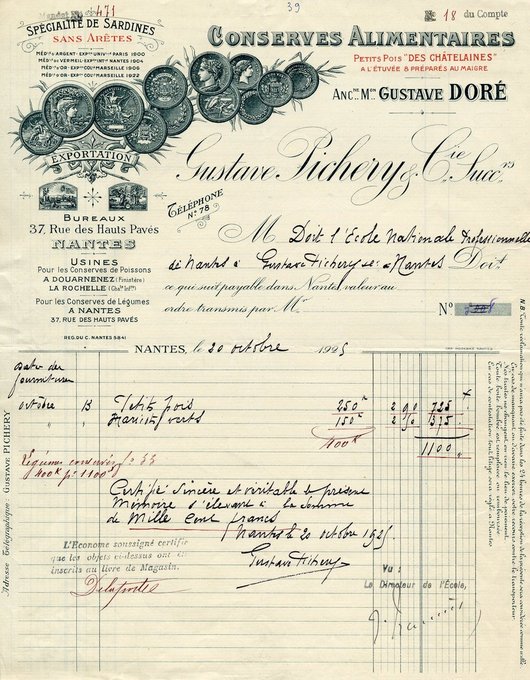 Mandat No 471
39
No 18 du Compte
SPÉCIALITÉ DE SARDINES
SANS ARÊTES
MÉDlle ARGENT - EXPon UNIVlle PARIS 1900
MÉDlle VERMEIL - EXPon INTle NANTES 1904
MÉDlle OR - EXPon COLle MARSEILLE 1906
MÉDlle OR - EXPon COLle MARSEILLE 1922
CONSERVES ALIMENTAIRES
PETITS POIS "DES CHÂTELAINES"
A L'ÉTUVÉE & PRÉPARÉS AU MAIGRE
ANCne Mon GUSTAVE DORÉ
EXPORTATION
Gustave Pichery & Cie Succrs
TÉLÉPHONE
No 78
BUREAUX
37, Rue des Hauts Pavés
NANTES
USINES
Pour les Conserves de Poissons
A DOUARNENEZ (Finistère)
LA ROCHELLE (Chte Infre)
Pour les Conserves de Légumes
A NANTES
37, RUE DES HAUTS PAVÉS
REG. DU C. NANTES 5841
M Doit l'Ecole Nationale Professionnelle
de Nantes à Gustave Pichery & Cie à Nantes Doit
ce qui suit payable dans Nantes, valeur au
ordre transmis par Mr
No
NANTES, le 20 octobre 1925
Dates des
fournitures
octobre 13 Petits pois 250 k 2 90 725 "
" " Haricots verts 150 k 2 50 375 "
400 k 1100 "
Légumes conservés : 55
400 k p. 1100
Certifié sincère et véritable le présent
Mémoire s'élevant à la somme
de Mille Cent francs
Nantes le 20 octobre 1925
Gustave Pichery
L'Econome soussigné certifie
que les objets ci-dessus ont été
inscrits au livre de Magasin.
Vu :
Le Directeur de l'Ecole,
Adresse télégraphique : GUSTAVE PICHERY